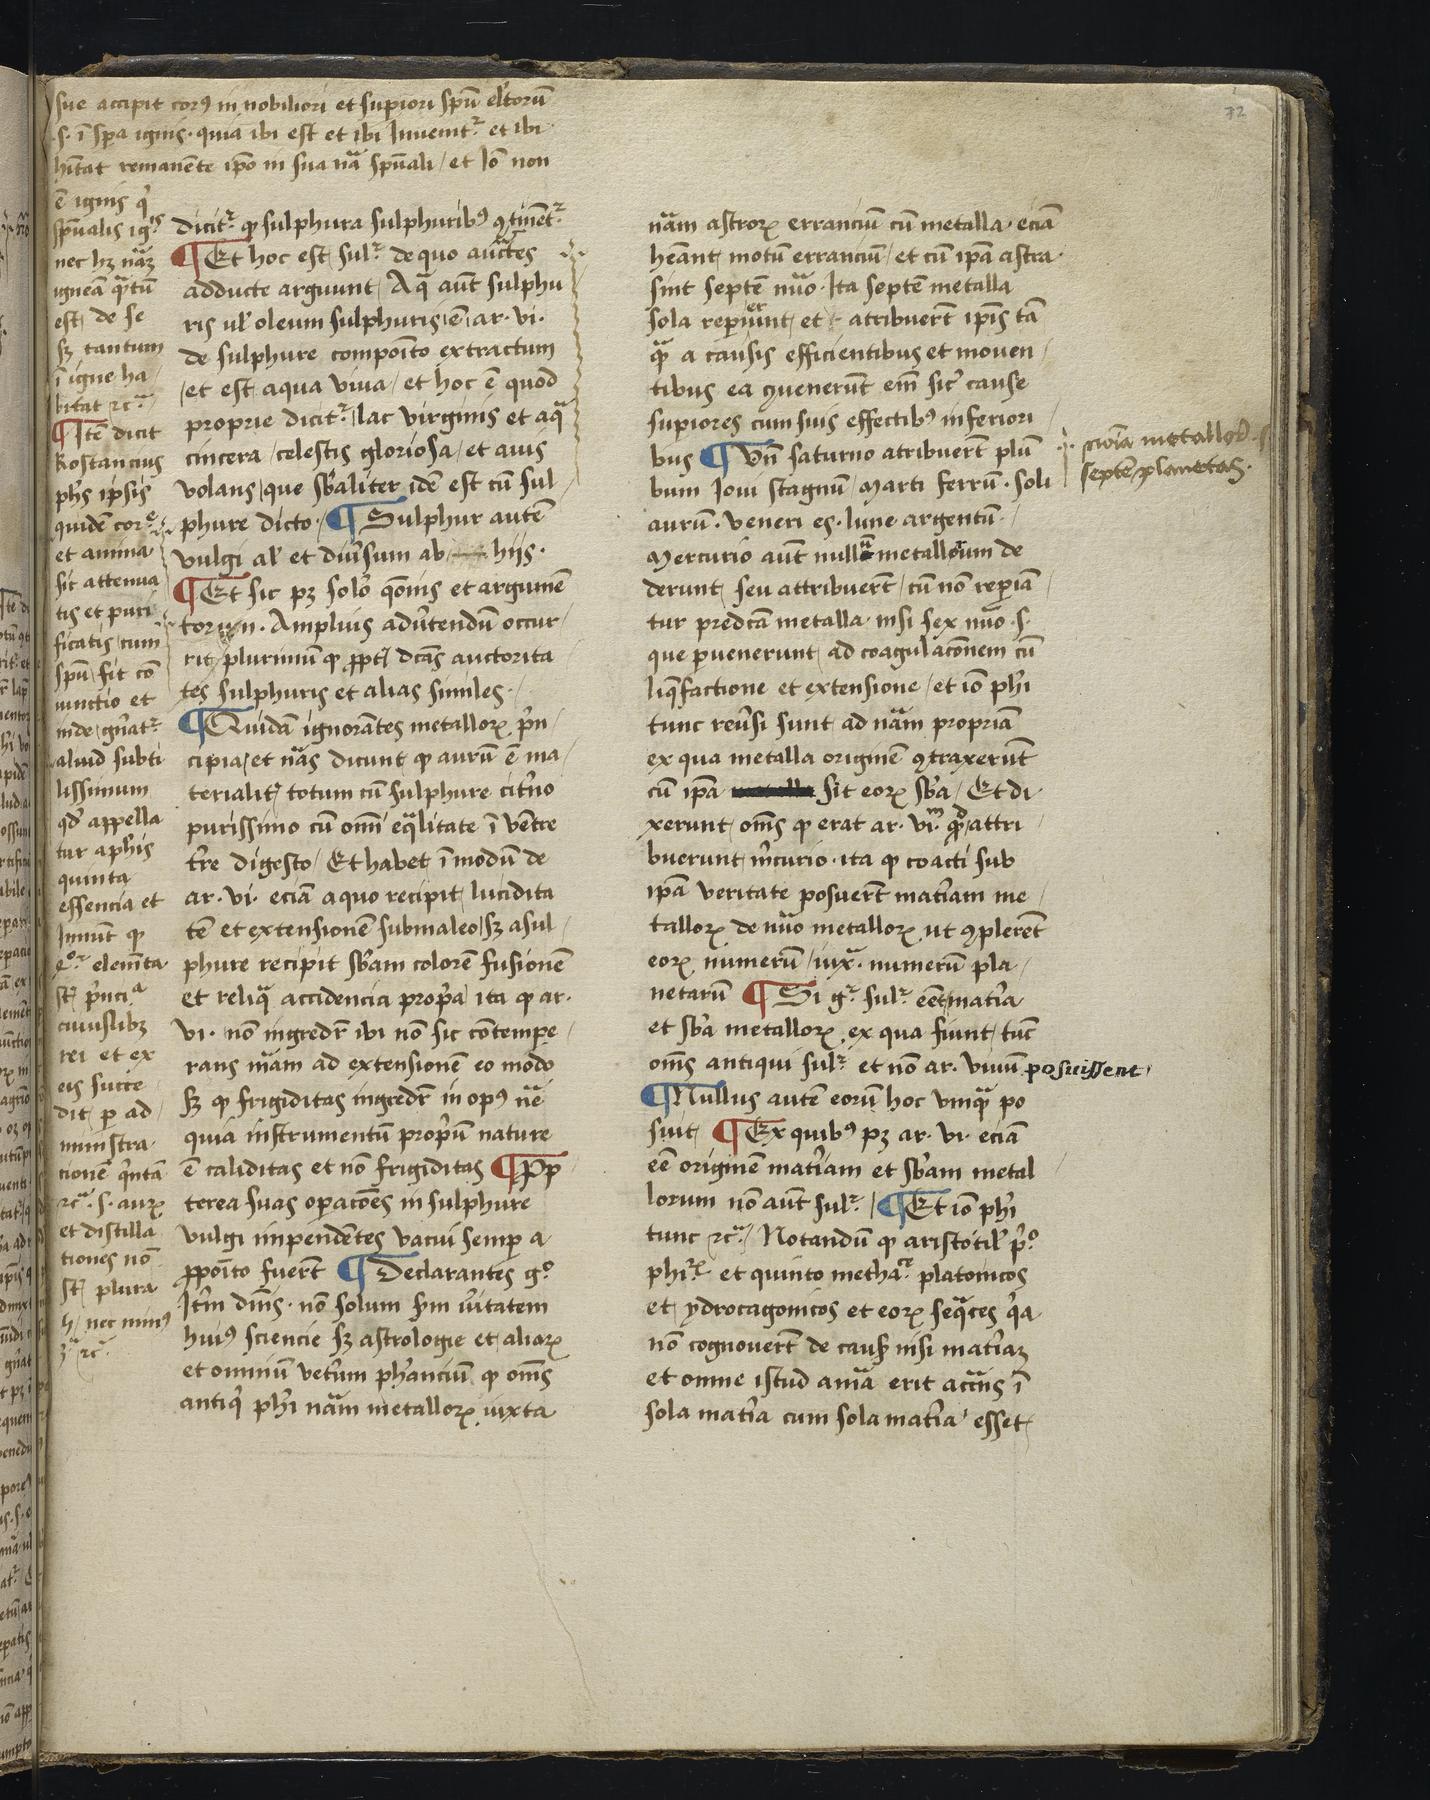 sue accipit corꝰ in nobiliori et supiori spū elītorū
.s. ī spa ignis. quia ibi est et ibi Inuenitᷣ et ibi
hītat remanēte ipō in sua nā spūali / et Iō non
ē ignis
spūalis
nec hꝫ nāꝫ
igneā qᵃtū
est de se
sꝫ tantum
ī igne ha
bitat ⁊cᵃ
¶ Itē dicit
Rostancius
phs ipsis
quidē cor
et anima
sic attenua
tis et puri
ficatis cum
spū fit cō
iunctio et
inde gn̄atᷣ
aliud subti
lissimum
qd appella
tur aphis
quinta
essencia et
Inuūt ꝙ
elemēta
st prīci
cuiuslibꝫ
rei et ex
eis succe
dit p ad
ministra
cionē
⁊cᵃ .s. auꝝ
et distilla
tiones nō
st plura
nec minꝰ
⁊cᵃ
dicitᷣ ꝙ sulphura sulphuribꝰ ꝯtinētᷣ
¶ Et hoc est sulᷣ de quo auctes
adducte arguunt / Aqᵃ aūt sulphu
ris ul oleum sulphuris ē ar. vi.
de sulphure compoīto extractum
/ et est aqua viua / et hoc ē quod
proprie dicitᷣ lac virginis et aqᵃ
cincera / celestis gloriosa / et auis
volans / que sbāliter idē est cū sul
phure dicto. ¶ Sulphur autē
vulgi al et diuisum ab hijs.
¶ Et sic pꝫ solō qōnis et argumē
torum. Amplius aduertendū occur
rit / plurimū ꝙ ppt dcās auctorita
tes sulphuris et alias similes.
¶ Quidā ignorātes metalloꝝ prin
cipia / et nās dicunt ꝙ aurū ē ma
terialit totum cū sulphure citrno
purissimo cū omī eqᵃlitate ī vētre
tr̄e digesto / Et habet ī modū de
ar. vi. eciā a quo recipit lucidita
tē et extensionē submaleo / sꝫ a sul
phure recipit sbām colorē fusionē
et reliqᵃ accidencia propa ita ꝙ ar.
vi. nō ingredr ibi nō sic cōtempe
rans nām ad extensionē eo modo
sꝫ ꝙ frigiditas ingredr in opꝰ nē
quia instrumentū propū nature
ē caliditas et nō frigiditas ¶ Pp
terea suas opacōes in sulphure
vulgi impendētes vacui semp a
ppoīto fuert ¶ Declarantes gº
Itm dms. nō solum sm vitatem
huiꝰ sciencie sꝫ astrologie et alioꝝ
et omniū vetrum phanciū ꝙ oms
antiq phi nām metalloꝝ iuxta
nām astroꝝ erranciū cū metalla eciā
heānt motū erranciū / et cū ipā astra
sint septē nuo. Ita septē metalla
sola reperiunt et atribuert ipis tā
qᵃ a causis efficientibus et mouen
tibus ea ꝯuenerūt em sic cause
supiores cum suis effectibꝰ inferiori
bus ¶ Vn saturno atribuert plū
bum Ioui stagnū / Marti ferrū. Soli
aurū. Veneri es. lune argentū.
Mercurio aūt nullū metallorum de
derunt seu attribuert / cū nō repiā
tur predcā metalla nisi sex nuo .s.
que puenerunt ad coagulacōnem cū
liqfactione et extensione / et iō phi
tunc reusi sunt ad nām propriā
ex qua metalla originē ꝯtraxerūt
cū ipā sit eoꝝ sbā / Et di
xerunt oms ꝙ erat ar. vi. attri
buerunt mrcurio. ita ꝙ coacti sub
ipā veritate posuert matiam me
talloꝝ de nuo metalloꝝ ut ꝯplerēt
eoꝝ numerū / iuxᵃ. numerū pla
netarū ¶ Si gᷣ sulᷣ eēt matia
et sbā metalloꝝ ex qua fiunt / tūc
oms antiqui sulᷣ et nō ar. viuū posuissent
¶ Nullus autē eorū hoc vnqᵃ po
suit ¶ Ex quibꝰ pꝫ ar. vi. eciā
eē originē matiam et sbām metal
lorum nō aūt sulᷣ / ¶ Et iō phi
tunc ⁊cᵃ / Notandū ꝙ aristotil pº
phiᷣ et quinto methaᷣ platonicos
et ydrocagoricos et eoꝝ seqᵃces qa
nō cognouert de caus nisi matiaꝫ
et omne istud aniā erit accns ī
sola matia cum sola matia esset
septē planetas.
72